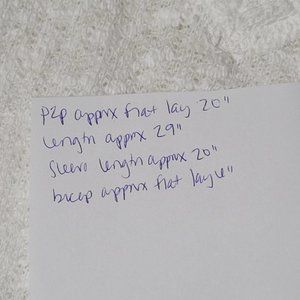 p2p apprx flat lay 20"
length apprx 29"
Sleeve length apprx 20"
bicep apprx flat lay 6"